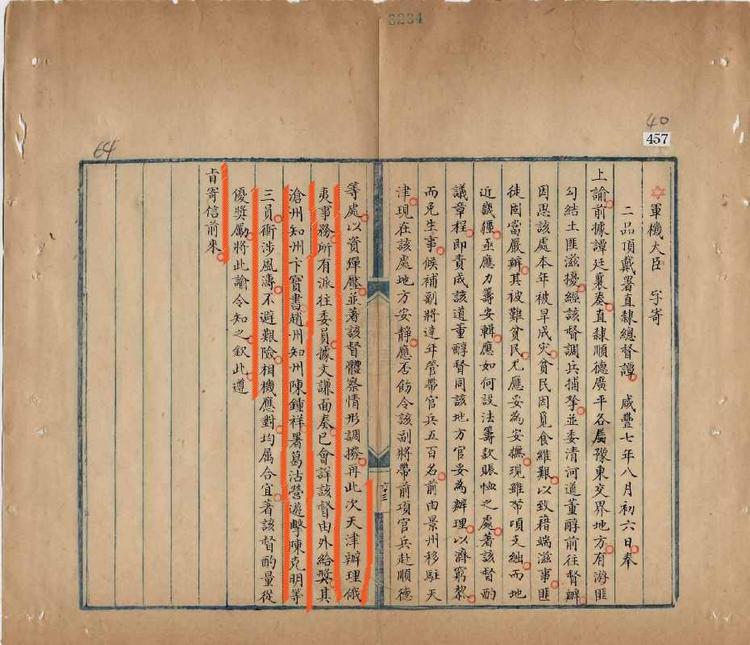 3234
40
457
軍機大臣 字寄
二品頂戴署直隸總督譚 咸豐七年八月初六日奉
上諭前據譚廷襄奏直隸順德廣平各屬豫東交界地方有游匪
勾結土匪滋擾經該督調兵捕拏並委清河道董醇前往督辦
因思該處本年被旱成災貧民因覓食維艱以致藉端滋事匪
徒固當嚴辦其被難貧民尤應妥為安撫現雖帑項支絀而地
近畿輔亟應力籌安輯應如何設法籌款賑恤之處著該督酌
議章程即責成該道董醇督同該地方官妥為辦理以濟窮黎
而免生事候補副將達年管帶官兵五百名前由景州移駐天
津現在該處地方安靜應否飭令該副將帶前項官兵赴順德
等處以資彈壓並著該督體察情形調撥再此次天津辦理俄
夷事務所有派往委員據文謙面奏已會詳該督由外給獎其
滄州知州卞寶書趙州知州陳鍾祥署葛沽營遊擊陳克明等
三員衝涉風濤不避艱險相機應對均屬合宜著該督酌量從
優獎勵將此諭令知之欽此遵
旨寄信前來
64